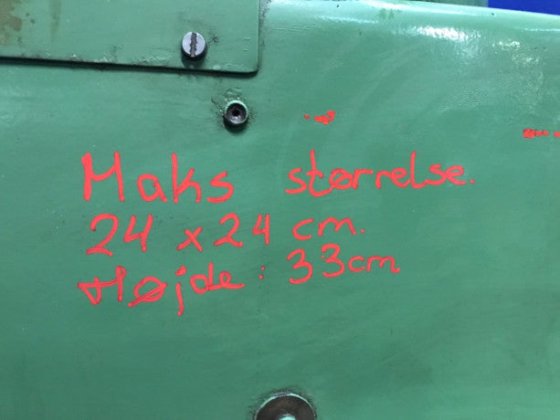 Maks størrelse.
24 x 24 cm.
Højde: 33cm